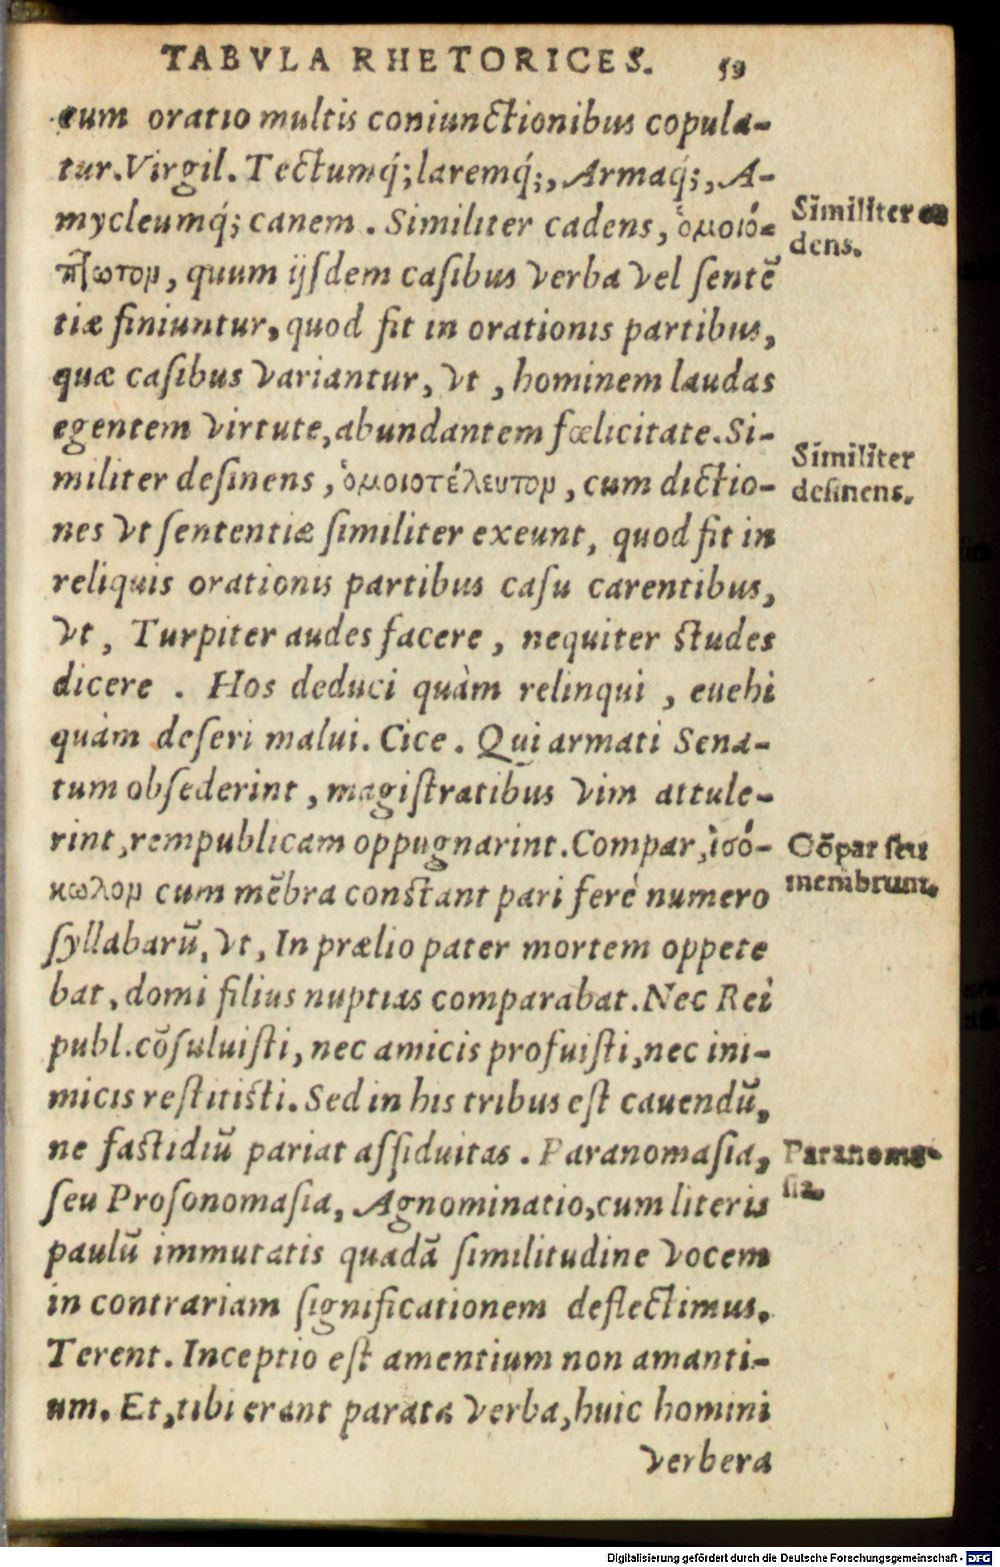 TABVLA RHETORICES. 59
cum oratio multis coniunctionibus copula-
tur. Virgil. Tectumq́;laremq́;, Armaq́;, A-
mycleumq́; canem. Similiter cadens, ὁμοιό-
πτωτον, quum ijſdem caſibus verba vel ſentē
tiæ finiuntur, quod fit in orationis partibus,
quæ caſibus variantur, vt, hominem laudas
egentem virtute, abundantem fœlicitate. Si-
militer deſinens, ὁμοιοτέλευτον, cum dictio-
nes vt ſententiæ ſimiliter exeunt, quod fit in
reliquis orationis partibus caſu carentibus,
vt, Turpiter audes facere, nequiter ſtudes
dicere. Hos deduci quàm relinqui, euehi
quàm deſeri malui. Cice. Qui armati Sena-
tum obſederint, magiſtratibus vim attule-
rint, rempublicam oppugnarint. Compar, ἰσό-
κωλον cum mēbra conſtant pari ferè numero
ſyllabarū, vt, In prælio pater mortem oppete
bat, domi filius nuptias comparabat. Nec Rei
publ. cōſuluiſti, nec amicis profuiſti, nec ini-
micis reſtitiſti. Sed in his tribus eſt cauendū,
ne faſtidiū pariat aſſiduitas. Paranomaſia,
ſeu Proſonomaſia, Agnominatio, cum literis
paulū immutatis quadā ſimilitudine vocem
in contrariam ſignificationem deflectimus.
Terent. Inceptio eſt amentium non amanti-
um. Et, tibi erant parata verba, huic homini
verbera
Similiter ca
dens.
Similiter
deſinens.
Cōpar ſeu
membrum.
Paranoma-
ſia.
Digitalisierung gefördert durch die Deutsche Forschungsgemeinschaft - DFG